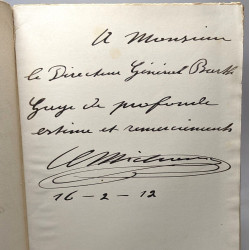 A Monsieur
le Directeur Général
Gage de profonde
estime et remerciements
16-2-12